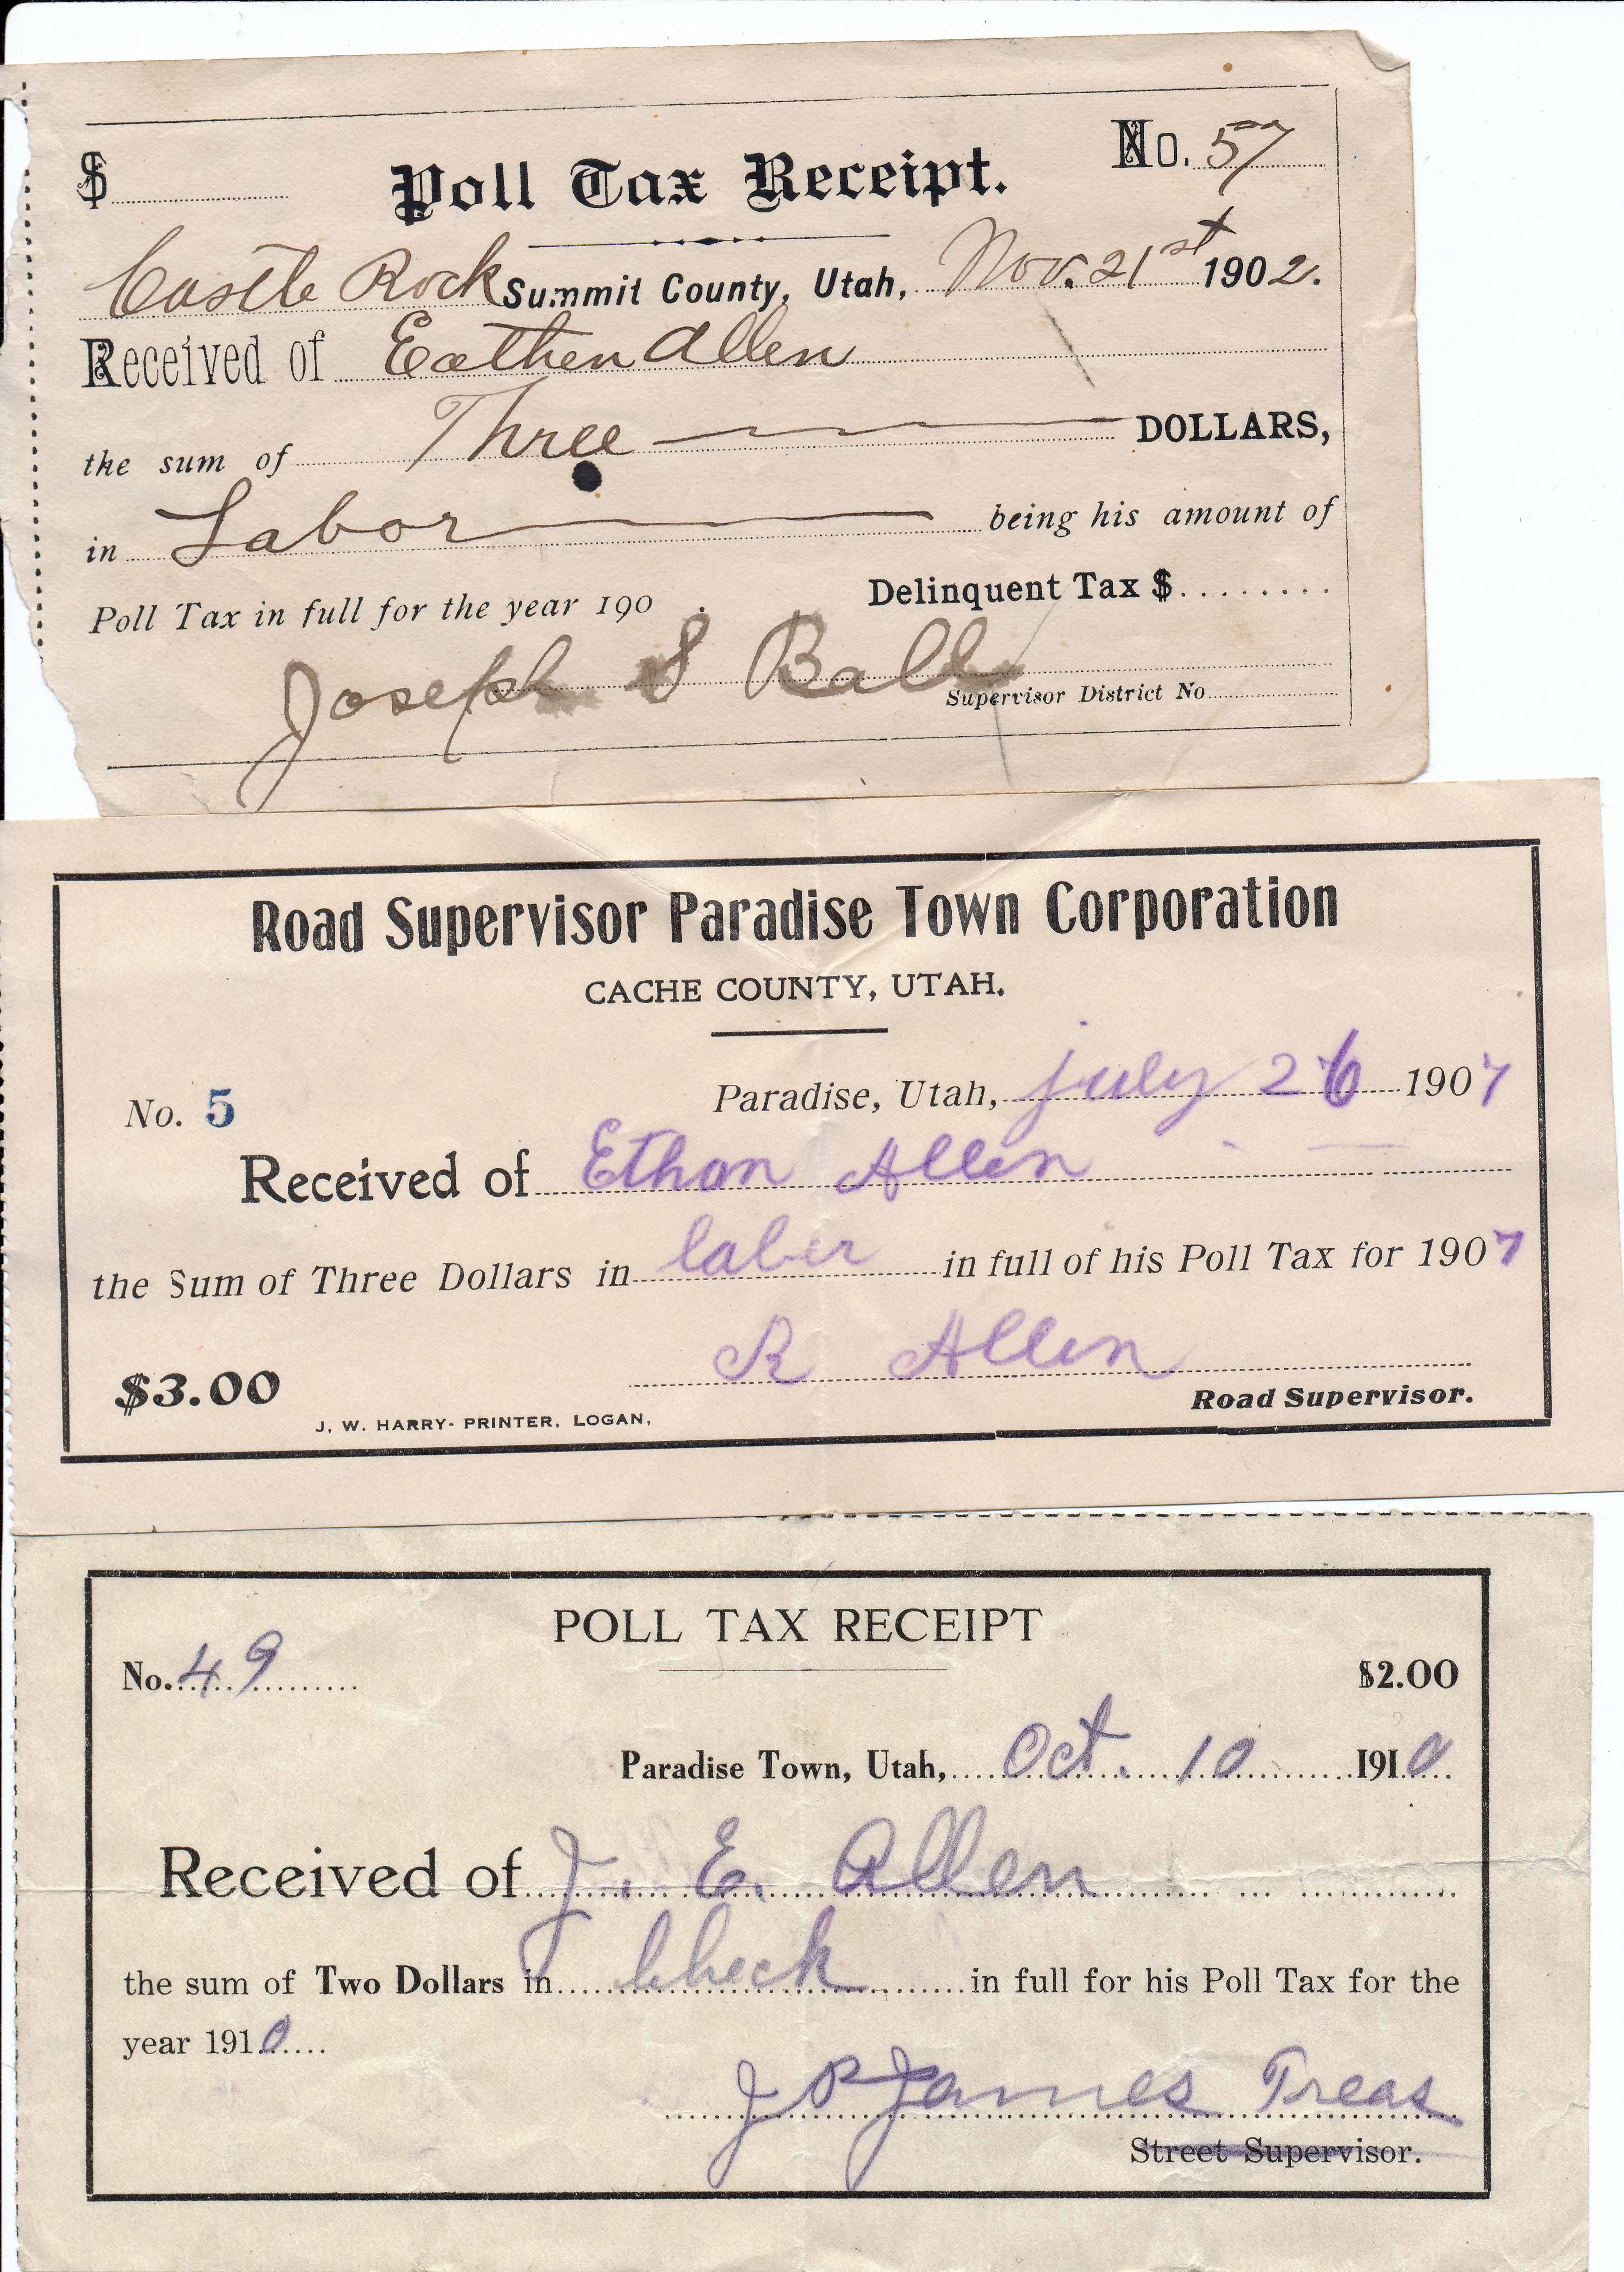 $ Poll Tax Receipt. No. 57
Castle Rock Summit County, Utah, Nov. 21st 1902.
Received of Eathen Allen
the sum of Three DOLLARS,
in Labor being his amount of
Poll Tax in full for the year 190 . Delinquent Tax $
Joseph S Ball
Supervisor District No
Road Supervisor Paradise Town Corporation
CACHE COUNTY, UTAH.
No. 5 Paradise, Utah, july 26 1907
Received of Ethan Allen
the Sum of Three Dollars in laber in full of his Poll Tax for 1907
R Allen
$3.00 Road Supervisor.
J. W. HARRY- PRINTER, LOGAN.
POLL TAX RECEIPT
No. 49 $2.00
Paradise Town, Utah, Oct. 10 1910
Received of J. E. Allen
the sum of Two Dollars in Check in full for his Poll Tax for the
year 1910
J P James Treas
Street Supervisor.